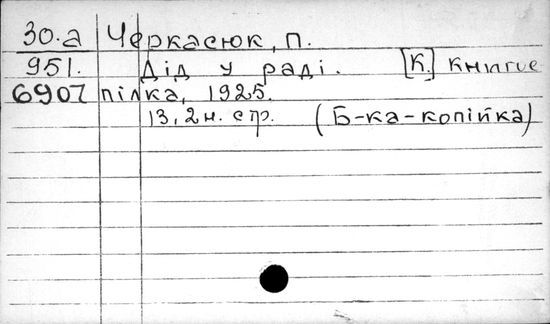 30.а Черкасюк, П.
951. Дід у раді. [К.] Книгос
6907 пілка, 1925.
13, 2 н. стр. (Б-ка-копійка)